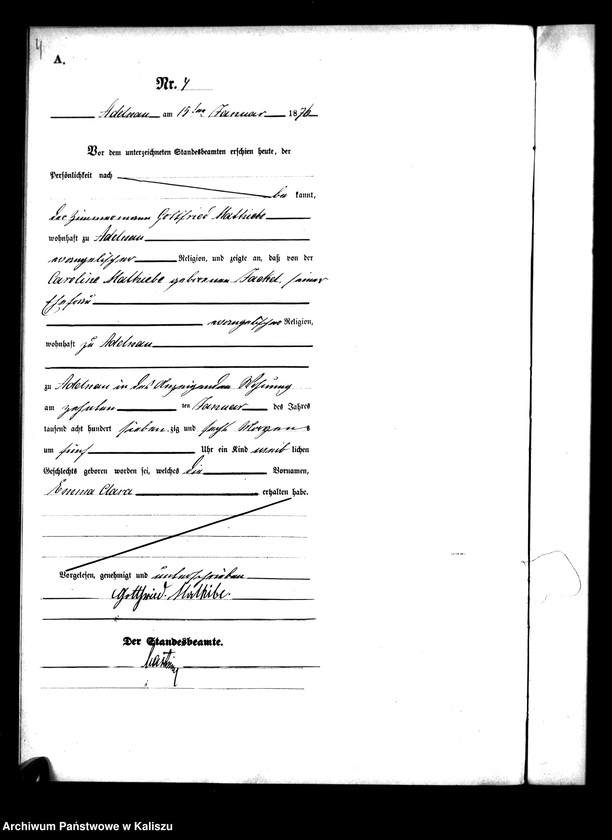 4
A.
Nr. 4
Adelnau am 15ten Januar 1876
Vor dem unterzeichneten Standesbeamten erschien heute, der
Persönlichkeit nach
be kannt,
der Zimmermann Gottfried Mathiebe
wohnhaft zu Adelnau
evangelischer Religion, und zeigte an, daß von der
Caroline Mathiebe geborenen Jaekel, seiner
Ehefrau
evangelischer Religion,
wohnhaft zu Adelnau
zu Adelnau in des Anzeigenden Wohnung
am zehnten ten Januar des Jahres
tausend acht hundert sieben zig und sechs Morgens
um fünf Uhr ein Kind weib lichen
Geschlechts geboren worden sei, welches die Vornamen,
Emma Clara erhalten habe.
Vorgelesen, genehmigt und unterschrieben
Gottfried Mathibe
Der Standesbeamte.
Archiwum Państwowe w Kaliszu